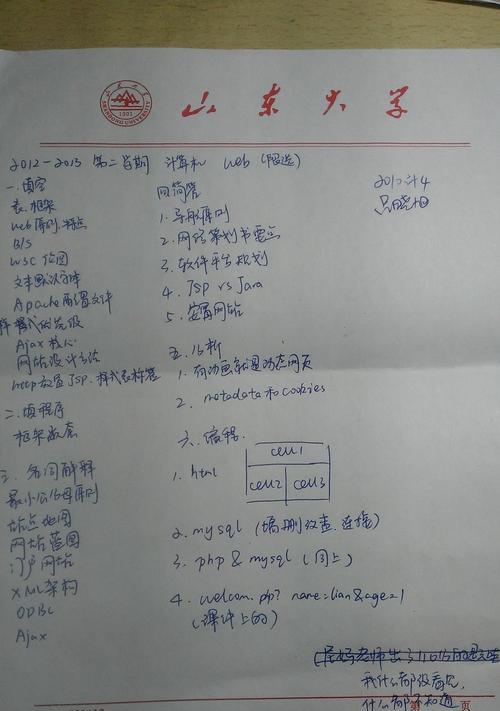 山东大学
SHANDONG UNIVERSITY
1901
2012-2013 第二学期 计算机 web (限选)
2010计4
一.填空
表.框架
web原则.特点
B/S
W3C 绘图
文本默认字体
Apache配置文件
样式的优先级
Ajax核心
网站设计方法
http放置JSP.样式表标签
二.填程序
框架嵌套
三.名词解释
最小公倍原则
站点地图
网站蓝图
门户网站
XML架构
ODBC
Ajax
四简答
1.导航原则
2.网络策划书要点
3.软件平台规划
4.JSP vs Java
5.安置网站
五.分析
1.有动画就是动态网页
2.metadata和cookies
六.编程.
1.html
cell1
cell2 cell3
2.mysql (增删改查.连接)
3.php & mysql (同上)
4.welcom.php? name=lian&age=1
(课件上的)
我什么都没看见,
什么都不知道
第 页